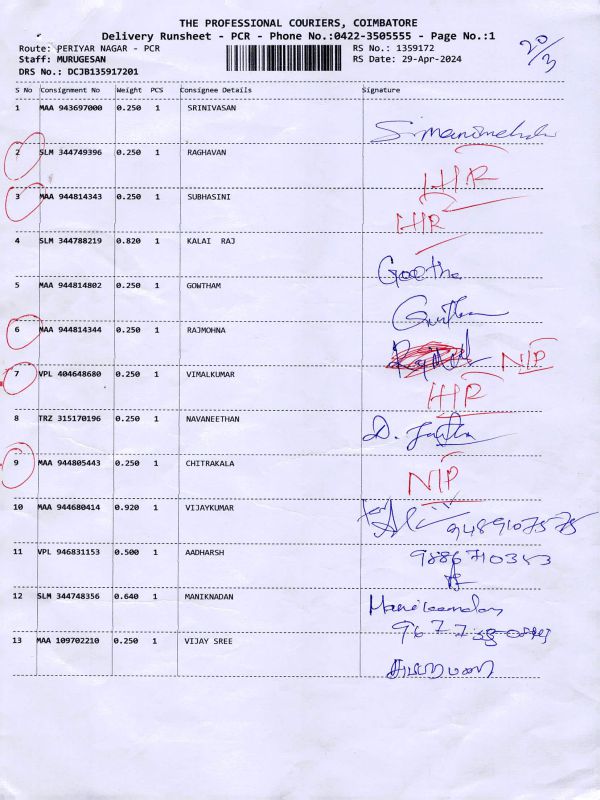 THE PROFESSIONAL COURIERS, COIMBATORE
Delivery Runsheet - PCR - Phone No.:0422-3505555 - Page No.:1
Route: PERIYAR NAGAR - PCR RS No.: 1359172
Staff: MURUGESAN RS Date: 29-Apr-2024
DRS No.: DCJB135917201
20/3
S No Consignment No Weight PCS Consignee Details Signature
1 MAA 943697000 0.250 1 SRINIVASAN
2 SLM 344749396 0.250 1 RAGHAVAN
3 MAA 944814343 0.250 1 SUBHASINI
4 SLM 344788219 0.820 1 KALAI RAJ Geetha
5 MAA 944814802 0.250 1 GOWTHAM
6 MAA 944814344 0.250 1 RAJMOHNA N/P
7 VPL 404648680 0.250 1 VIMALKUMAR
8 TRZ 315170196 0.250 1 NAVANEETHAN
9 MAA 944805443 0.250 1 CHITRAKALA N/P
10 MAA 944680414 0.920 1 VIJAYKUMAR 9489107575
11 VPL 946831153 0.500 1 AADHARSH 9886710353
12 SLM 344748356 0.640 1 MANIKNADAN Manikandan
13 MAA 109702210 0.250 1 VIJAY SREE